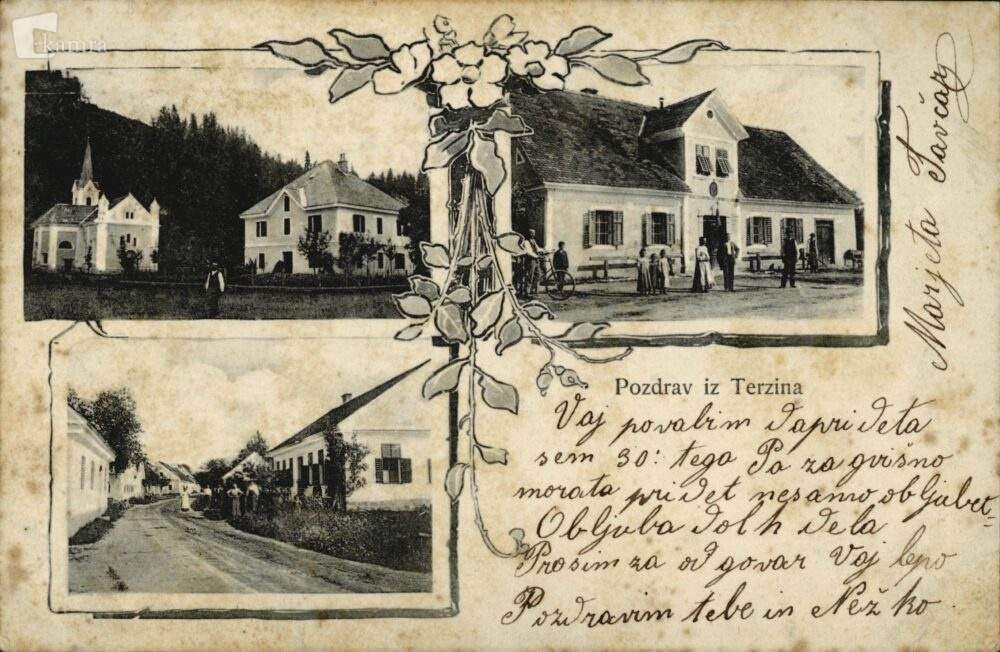 kamra
Pozdrav iz Terzina
Vaj povabim da prideta
sem 30: tega Pa za gvišno
morata pridet ne samo obljubet=
Obljuba dolh dela
Prosim za odgovar Vaj lepo
Pozdravim tebe in Nežko
Marjeta Tavčar